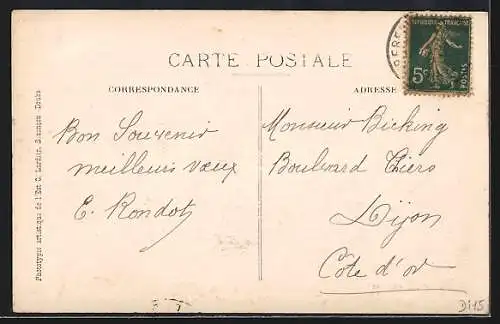 CARTE POSTALE
CORRESPONDANCE
ADRESSE
RÉPUBLIQUE FRANÇAISE
5c
POSTES
Bon Souvenir
meilleurs vœux
E. Rondot
Monsieur Bicking
Boulevard Thiers
Dijon
Côte d'or
Phototypie artistique de l'Est C. Lardier, Besançon Doubs
Di45